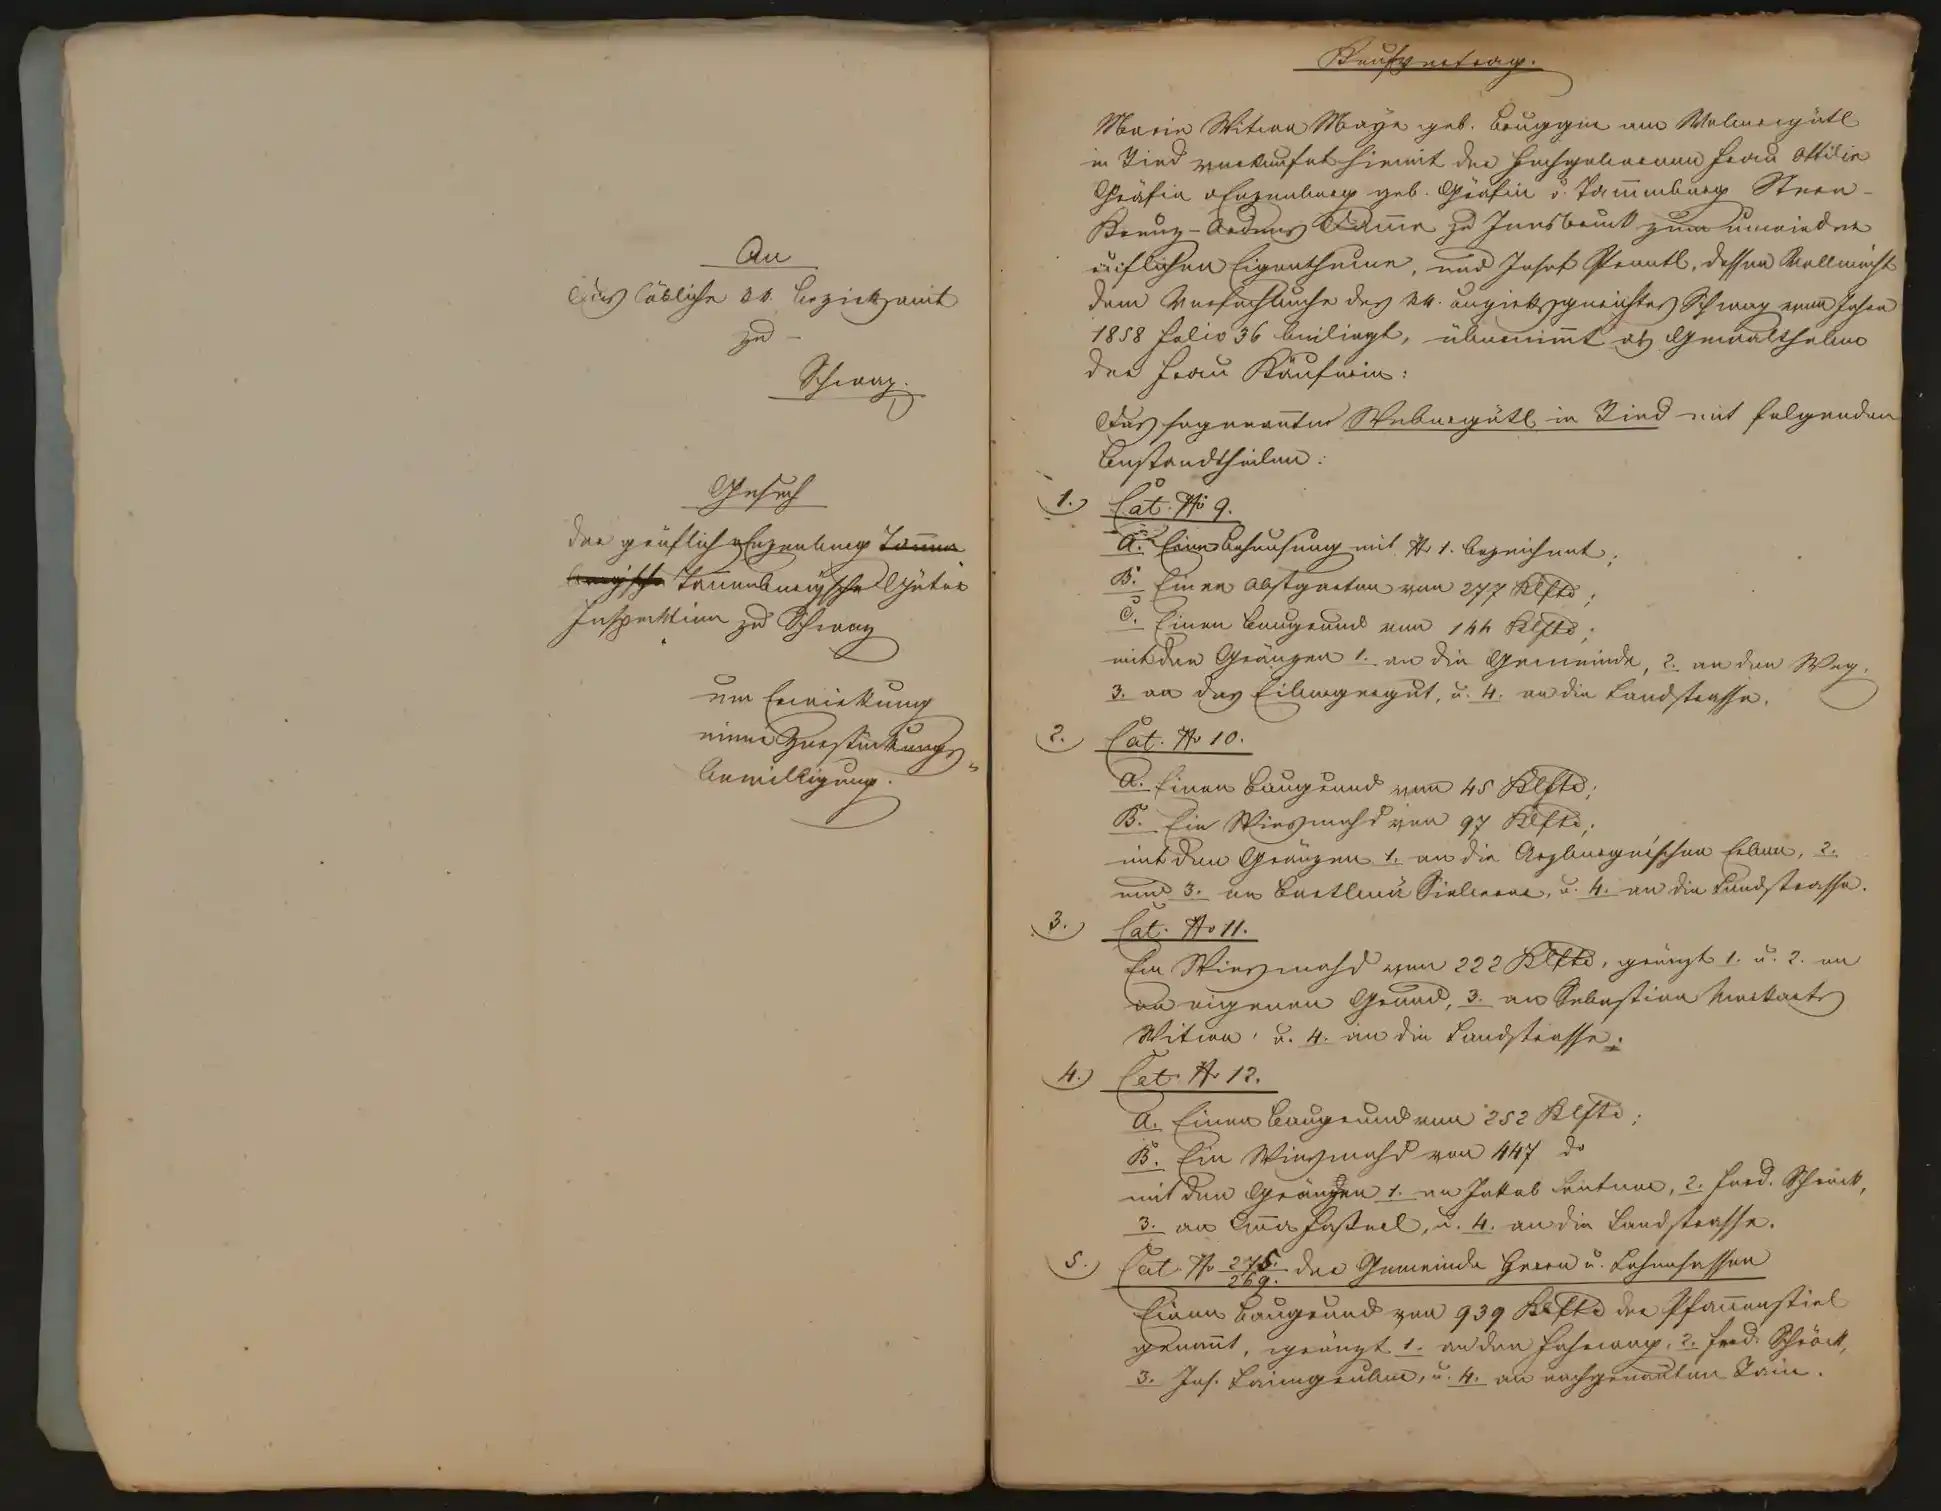 An
das löbliche kk. Bezirksamt
zu –
Schwaz.
Gesuch
der gräflich Enzenberg Tannen
bergische Tannenbergische Güter
Inspektion zu Schwaz
um Erwirkung
einer Zerstückungs
Bewilligung.
Kaufvertrag.
Maria Witwe Mayr geb. am Webergütl
in Ried verkaufet hiemit der Hochgebornen Frau Ottilie
Gräfin Enzenberg geb. Gräfin v. Tannenberg Stern-
Kreuz-Ordens Dame zu Innsbruck zum unwieder
ruflichen Eigenthume, und Josef dessen Vollmacht
dem Verfachbuche des kk. Bezirksgerichtes Schwaz vom Jahre
1858 Folio 36 beiliegt, übernimmt als Gewalthaber
der Frau Käuferin:
Das sogenannte Webergütl in Ried mit folgenden
Bestandtheilen:
1.) Cat. No 9.
A. Eine Behausung mit No 1. bezeichnet;
B. Einen Obstgarten von 277 Klftr;
C. Einen Baugrund von 144 Klftr;
mit den Gränzen 1. an die Gemeinde, 2. an den Weg,
3. an das u. 4. an die Landstrasse.
2.) Cat. No 10.
A. Einen Baugrund von 45 Klftr;
B. Ein Wiesmahd von 97 Klftr;
mit den Gränzen 1. an die Erben, 2.
und 3. an Bartlmä u. 4. an die Landstrasse.
3.) Cat. No 11.
Ein Wiesmahd von 222 Klftr, gränzt 1. u. 2. an
an eigenen Grund, 3. an Sebastian
Witwe, u. 4. an die Landstrasse.
4.) Cat. No 12.
A. Einen Baugrund von 252 Klftr;
B. Ein Wiesmahd von 447 do
mit den Gränzen 1. an Jakob 2. Ferd.
3. an Anna u. 4. an die Landstrasse.
5.) Cat. No 275./269. der Gemeinde Herrn u. Lehensassen
Einen Baugrund von 939 Klftr der Pfannenstiel
genannt, gränzt 1. an den Fahrweg, 2. Ferd.
3. Jos. u. 4. an nachgenannten Rain.